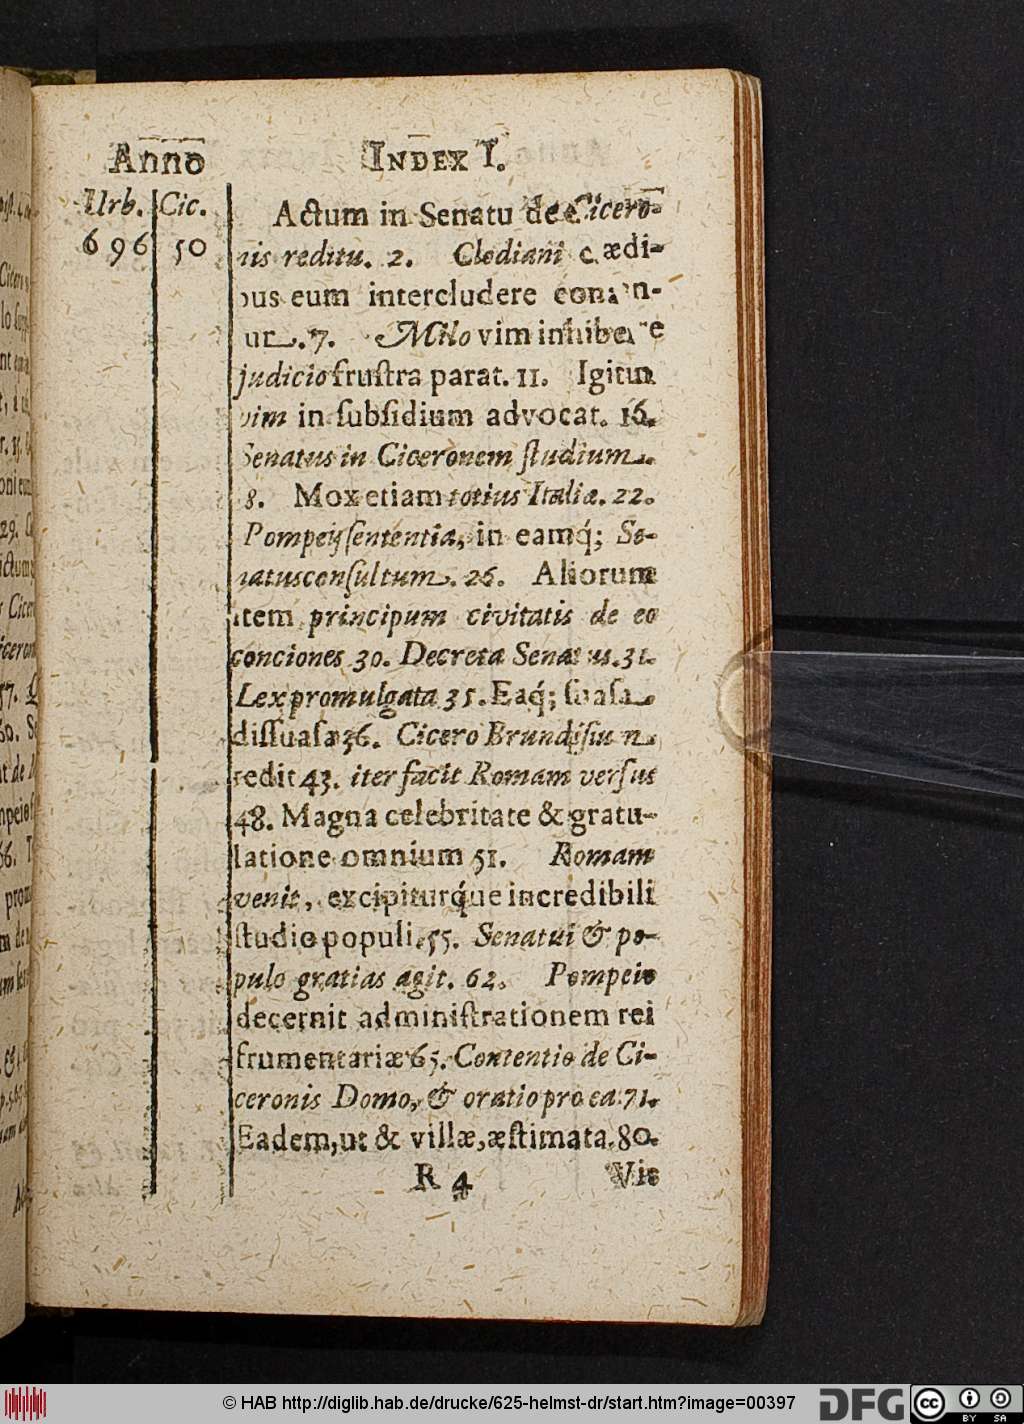 Anno INDEX I.
Urb. Cic.
696 50
Actum in Senatu de Cicero-
nis reditu. 2. Clodiani cædi-
bus eum intercludere conan-
ur. 7. Milo vim inhibere
judicio frustra parat. 11. Igitur
vim in subsidium advocat. 16.
Senatus in Ciceronem studium.
8. Mox etiam totius Italiæ. 22.
Pompeij sententia, in eamq́; Se-
natusconsultum. 26. Aliorum
item principum civitatis de eo
conciones 30. Decreta Senatus. 31.
Lex promulgata 35. Eaq́; suasa
dissuasa 36. Cicero Brundisium
redit 43. iter facit Romam versus
48. Magna celebritate & gratu-
latione omnium 51. Romam
venit, excipiturq́ue incredibili
studio populi. 55. Senatui & po-
pulo gratias agit. 62. Pompeio
decernit administrationem rei
frumentariæ 65. Contentio de Ci-
ceronis Domo, & oratio pro ea. 71.
Eadem, ut & villæ, æstimata. 80.
R 4 Vis
© HAB http://diglib.hab.de/drucke/625-helmst-dr/start.htm?image=00397
DFG
cc BY SA